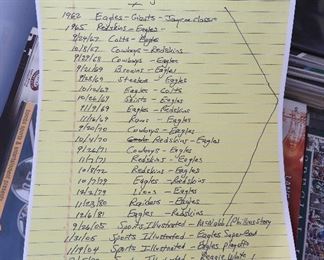 1962 Eagles - Giants - Jaycee classic
1965 Redskins - Eagles
9/24/67 Colts - Eagles
10/8/67 Cowboys - Redskins
9/29/68 Cowboys - Eagles
9/21/69 Browns - Eagles
9/28/69 Steelers - Eagles
10/12/69 Eagles - Colts
10/26/69 Skists - Eagles
11/9/69 Eagles - Redskins
11/16/69 Rams - Eagles
9/20/70 Cowboys - Eagles
10/4/70 Redskins - Eagles
9/26/71 Cowboys - Eagles
11/7/71 Redskins - Eagles
10/8/72 Redskins - Eagles
10/7/79 Eagles - Redskins
12/2/79 Lions - Eagles
11/23/80 Raiders - Eagles
12/6/81 Eagles - Redskins
9/26/05 Sports Illustrated - McNabb / Phillies story
1/31/05 Sports Illustrated - Eagles Super Bowl
1/19/04 Sports Illustrated - Eagles playoffs
Reggie White